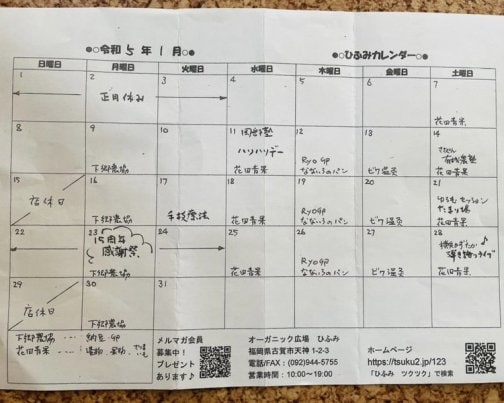 ●○令和5年1月○●
●○ひふみカレンダー○●
日曜日 月曜日 火曜日 水曜日 木曜日 金曜日 土曜日
1 2 3 4 5 6 7
正月休み
花田青果
8 9 10 11 12 13 14
下郷農協
ハリハリデー
花田青果
Ryo GP
なないろのパン
ビワ温灸
花田青果
15 16 17 18 19 20 21
店休日
下郷農協
手技療法
花田青果
Ryo GP
なないろのパン
ビワ温灸
ゆるゆるセッション
たまり場
花田青果
22 23 24 25 26 27 28
15周年
感謝祭
下郷農協
花田青果
Ryo GP
なないろのパン
ビワ温灸
弾き語りライブ
花田青果
29 30 31
店休日
下郷農協
下郷農協 ---- 納豆 GP
花田青果 ----
メルマガ会員
募集中!
プレゼント
あります♪
オーガニック広場 ひふみ
福岡県古賀市天神1-2-3
電話/FAX:(092)944-5755
営業時間:10:00〜19:00
ホームページ
https://tsuku2.jp/123
「ひふみ ツクツク」で検索